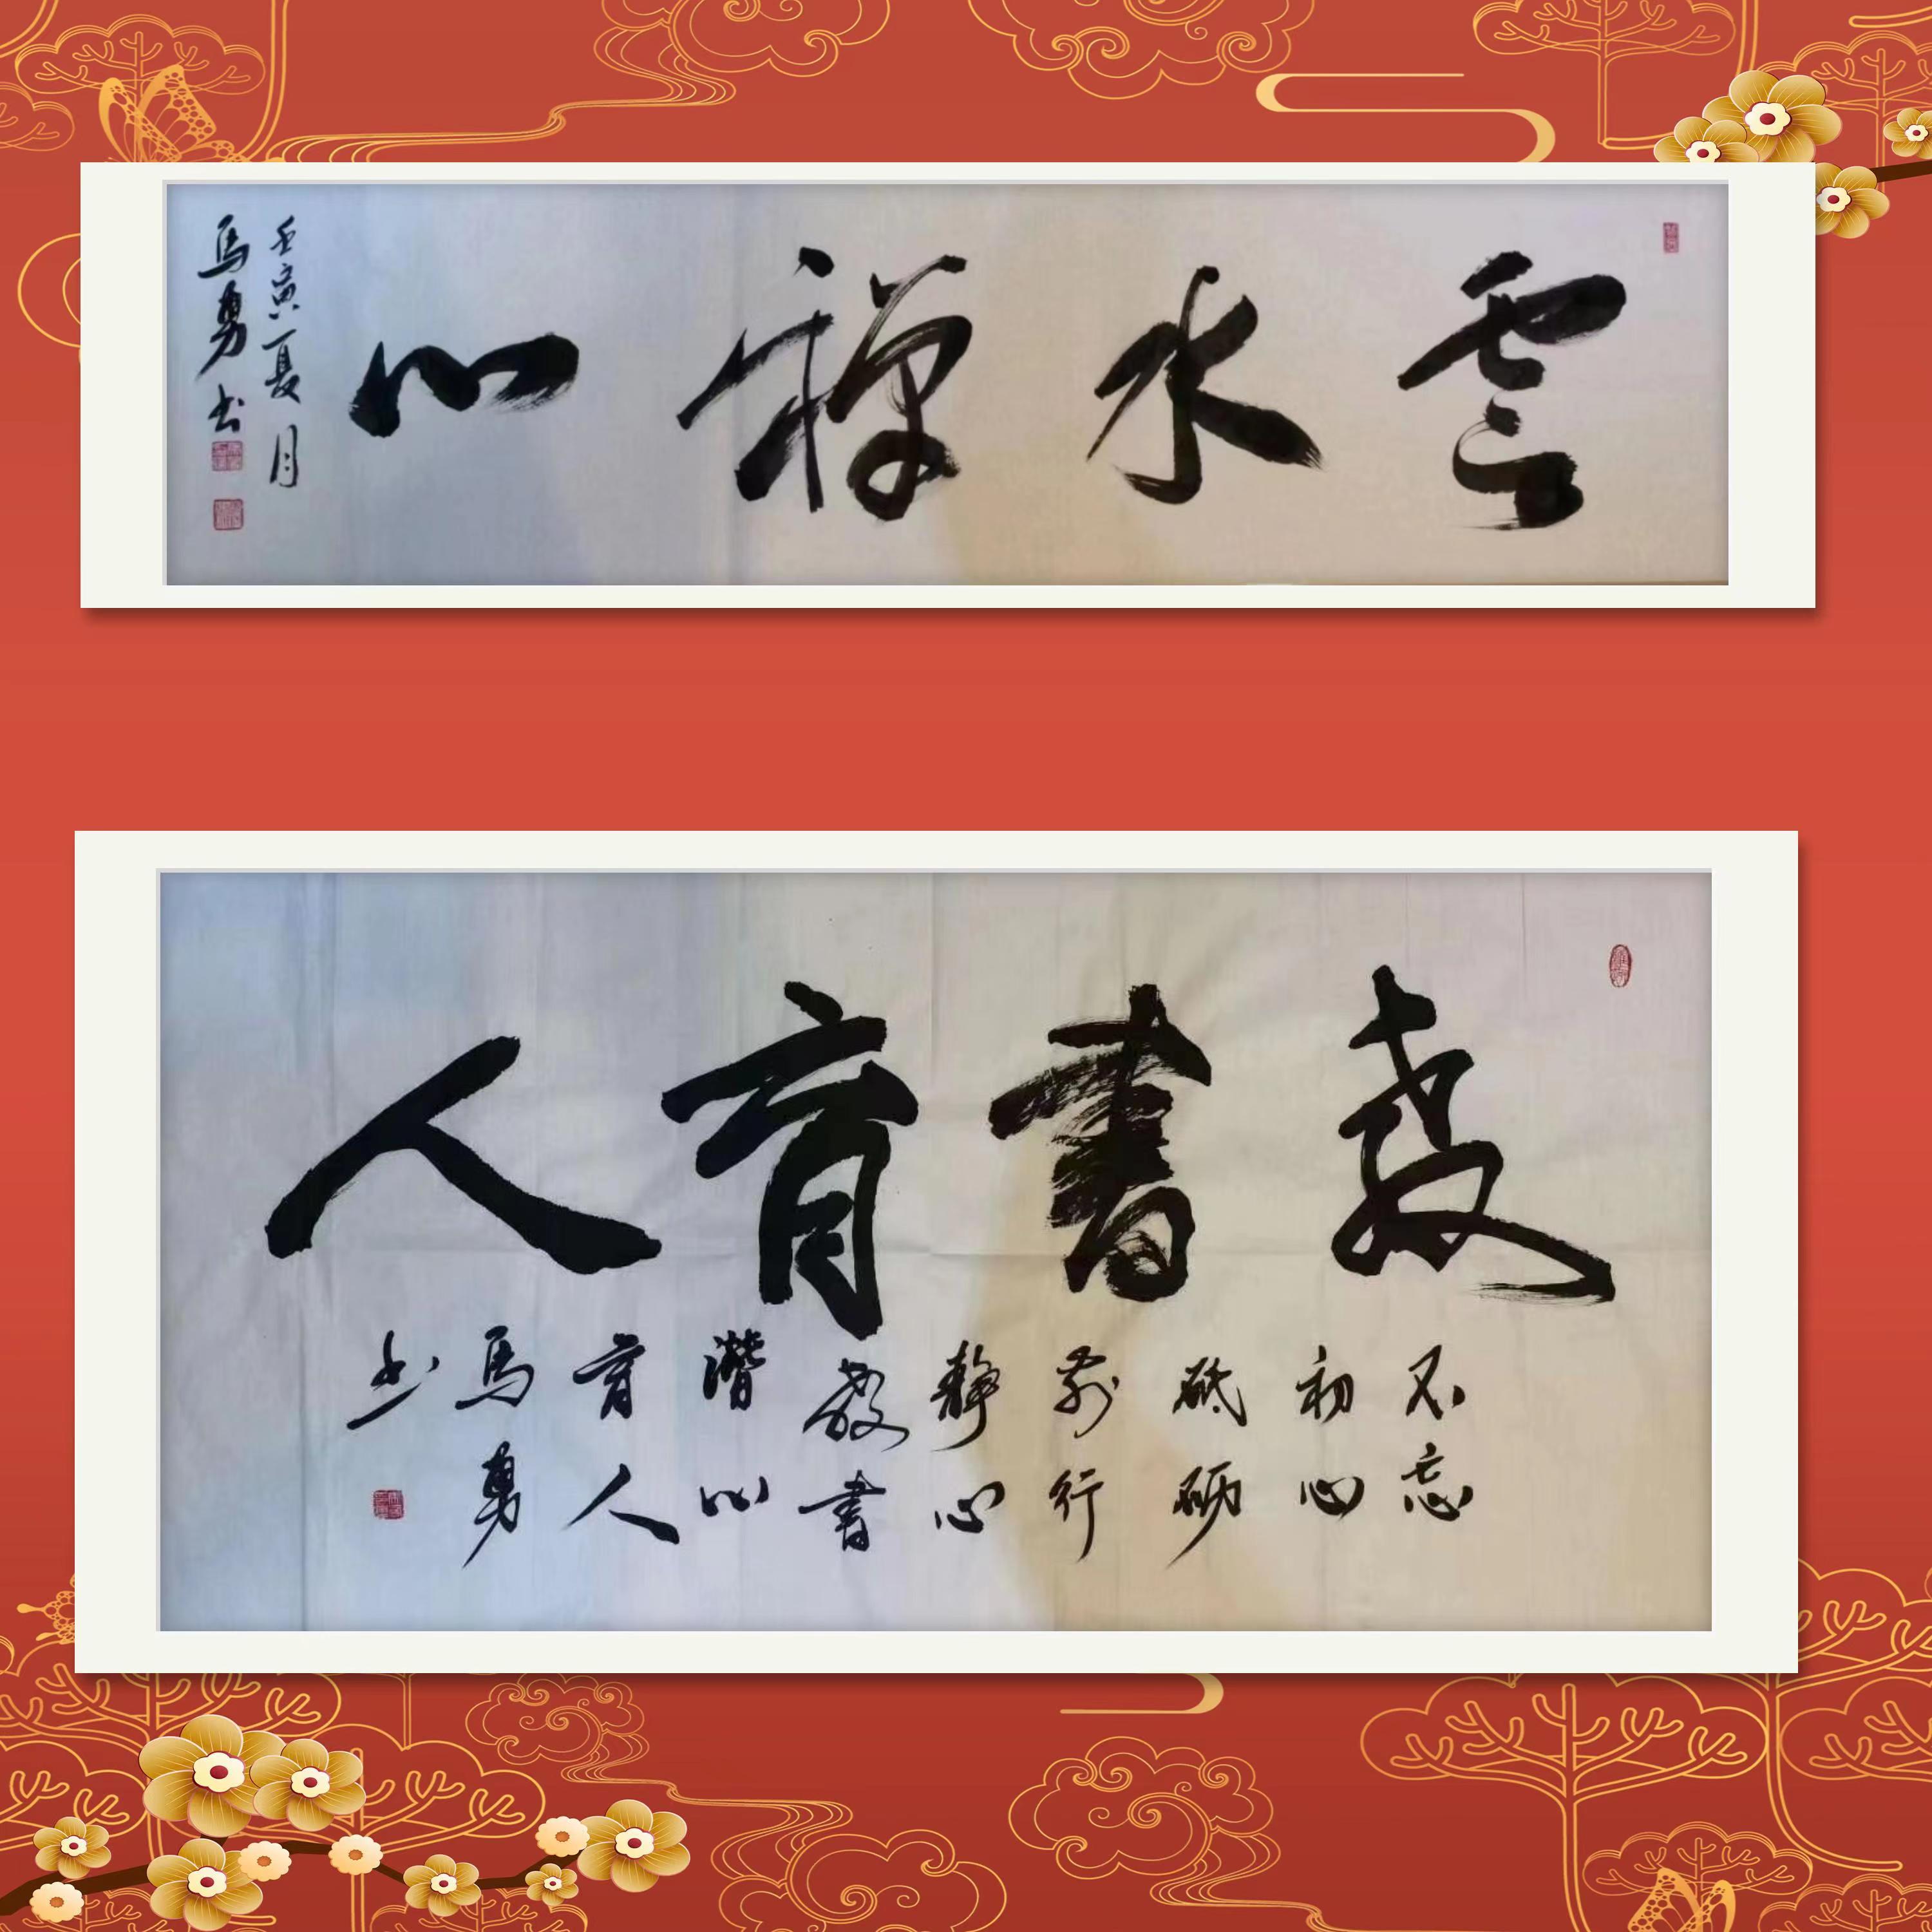 雲水禪心
壬寅夏月
馬勇书
教書育人
不忘
初心
砥砺
前行
静心
教書
潛心
育人
馬勇
书